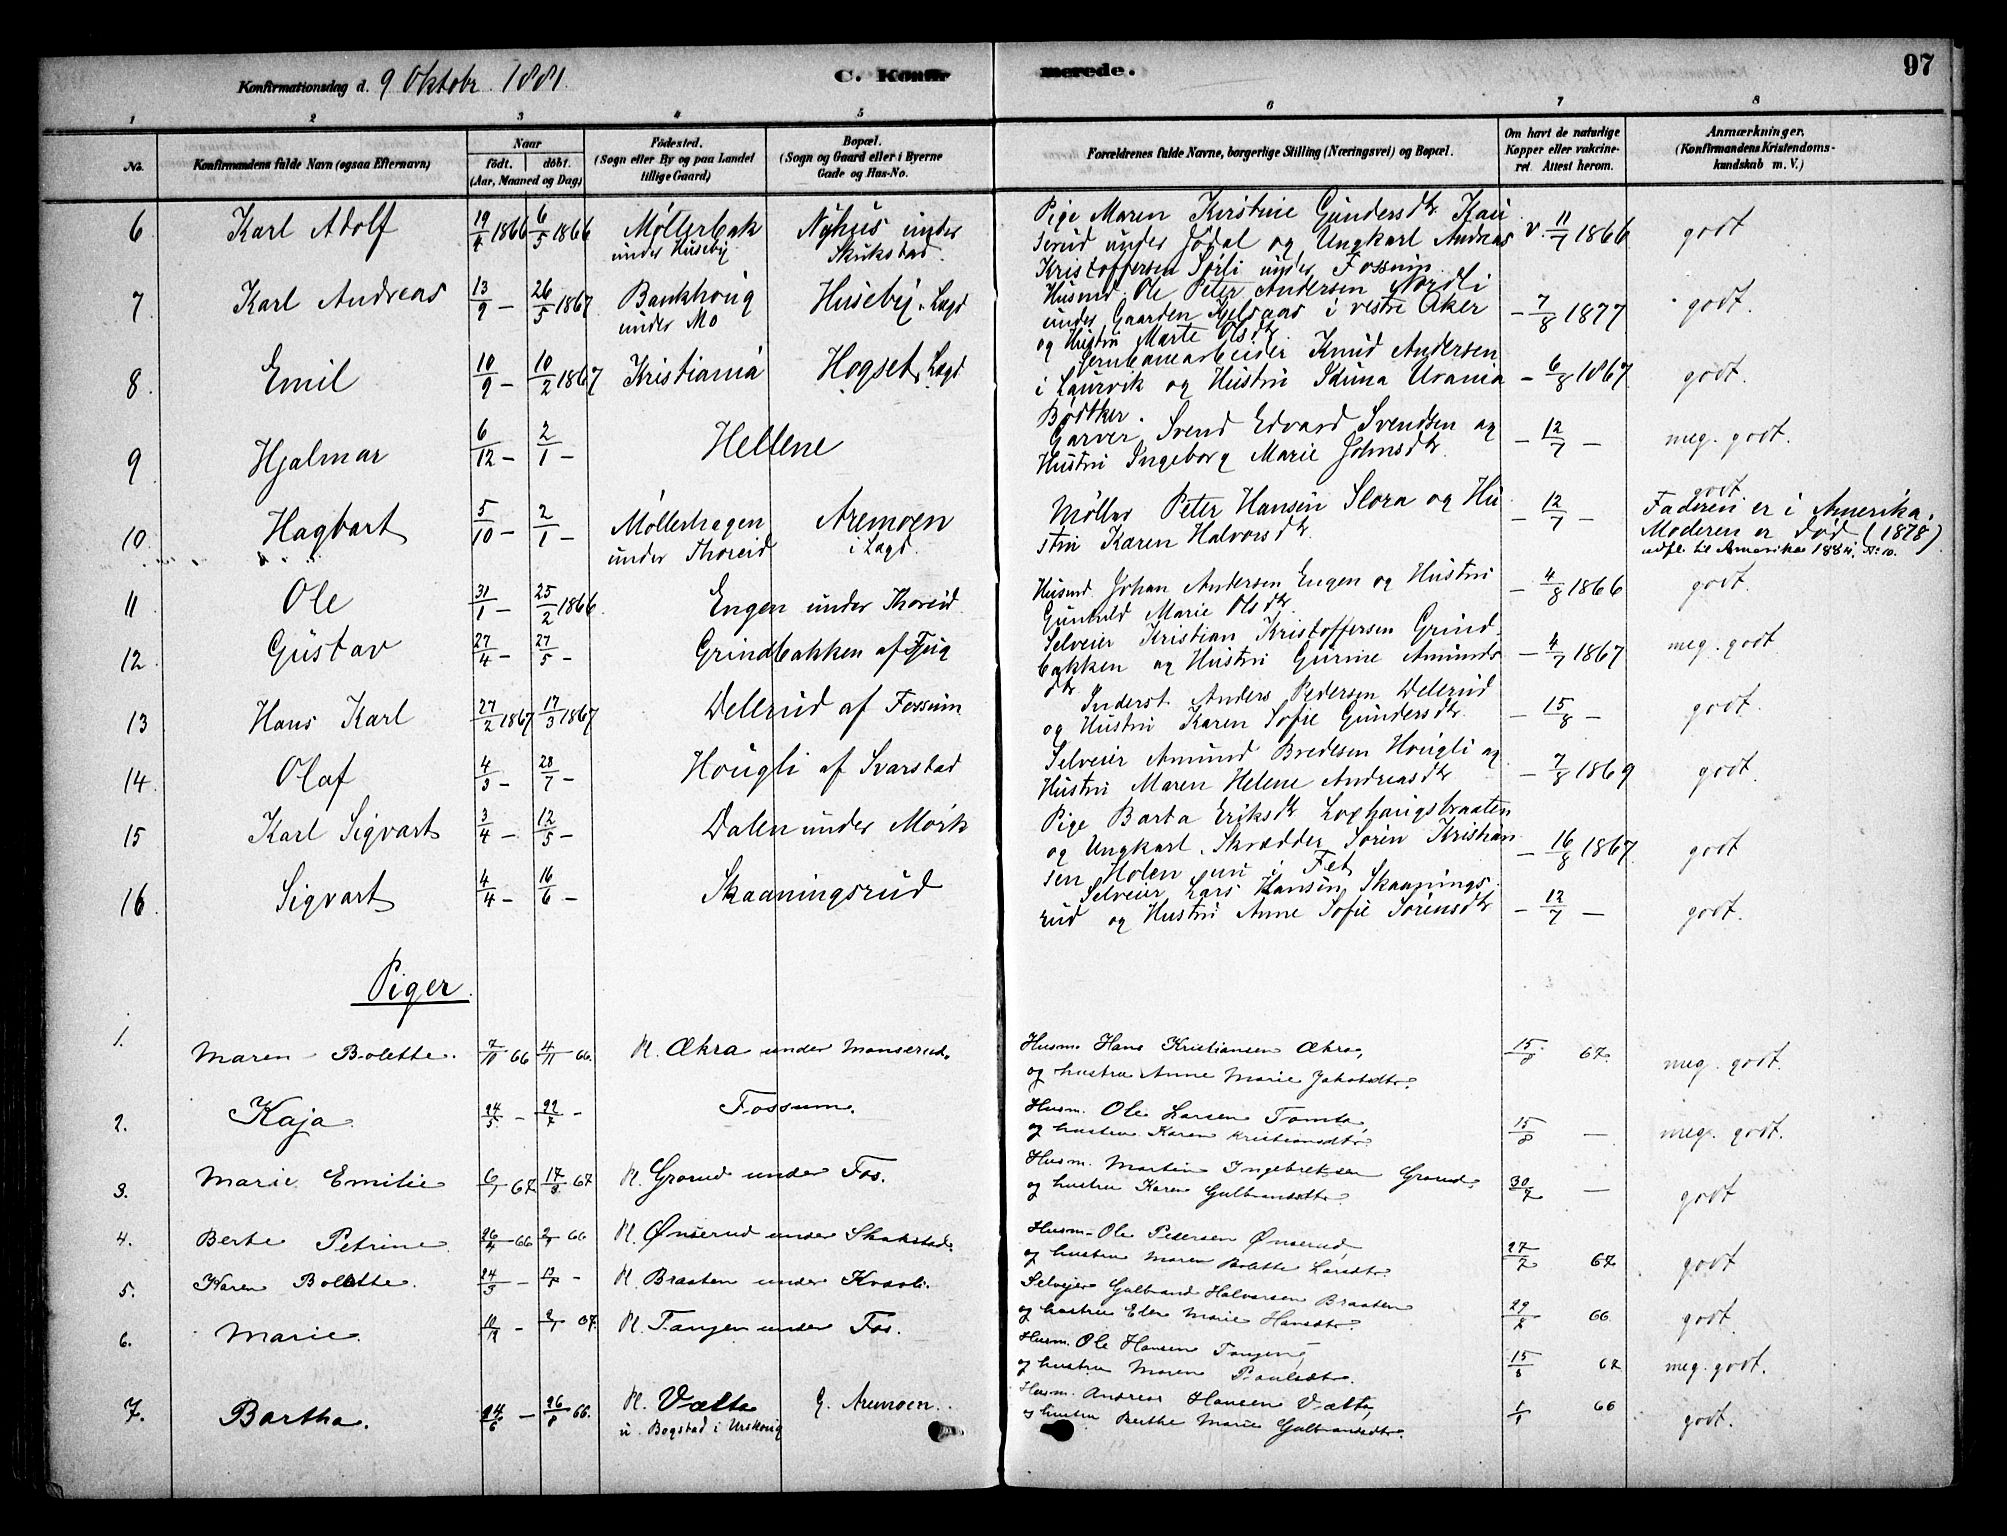 Konfirmationsdag d. 9 Oktobr. 1881.
C. Konfirmerede.
97
1 2 3 4 5 6 7 8
No.
Konfirmandens fulde Navn (ogsaa Efternavn)
Naar
födt. döbt.
(Aar, Maaned og Dag)
Födested.
(Sogn eller By og paa Landet
tillige Gaard)
Bopæl.
(Sogn og Gaard eller i Byerne
Gade og Hus-No.
Forældrenes fulde Navne, borgerlige Stilling (Næringsvei) og Bopæl.
Om havt de naturlige
Kopper eller vakcine-
ret Attest herom.
Anmærkninger.
(Konfirmandens Kristendoms-
kundskab m. V.)
6 Karl Adolf 19/4 1866 6/5 1866 Møllerbak Nyhus under
under Huseby Skukstad.
Pige Maren Kirstine Gundersdtr Kau
serud under Jödal og Ungkarl Andreas
Kristoffersen Sörli under Fossum
v. 11/7 1866 godt
7 Karl Andreas 13/9 – 26/5 1867 Bankhoug Huseby. Lagd
under Mo
Husmd. Ole Peter Andersen Nordli
under Gaarden Kjelsaas i vestre Aker
og Hustru Marte Olsdtr
– 7/8 1877 godt.
8. Emil 10/9 – 10/2 1867 Kristiania Hogset, Lagd
Jernbanearbeider Knud Andersen
i Laurvik og Hustru Skuna Urania
Bödtker.
– 6/8 1867 godt.
9 Hjalmar 6/12 – 2/1 – Hellene
Garver Svend Edvard Svendsen og
Hustru Ingeborg Marie Johnsdtr.
– 12/7 – meg. godt.
10. Hagbart 5/10 – 2/1 – Møllerhagen Aremoen
under Thoreid i Lagd.
Møller Peter Hansen Slora og Hu
stru Karen Halvorsdtr.
– 12/7 – godt
Faderen er i Amerika.
Moderen er död (1878)
udfl. til Amerika 1884. No 10.
11 Ole 31/1 – 25/2 1866 Engen under Thoreid.
Husmd. Johan Andersen Engen og Hustru
Gunhild Marie Olsdtr.
– 4/8 1866 godt.
12. Gustav 27/4 – 27/5 – Grindbakken af Fjug
Selveier Kristian Kristoffersen Grind-
bakken og Hustru Gurine Amunds
dtr.
– 4/7 1867 meg. godt
13 Hans Karl 27/2 1867 17/3 1867 Delerud af Fossum
Inderst Anders Pedersen Delerud
og Hustru Karen Sofie Gundersdtr.
– 15/8 – godt.
14. Olaf 4/3 – 28/7 – Hougli af Svarstad
Selveier Amund Bredesen Hougli og
Hustru Maren Helene Andreasdtr
– 7/8 1869 godt.
15 Karl Sigvart 3/4 – 12/5 – Dalen under Mörk
Pige Barta Eriksdtr Loxhaugsbraaten
og Ungkarl. Skrædder Sören Kristian
sen Holen nu i Fet
– 16/8 1867. godt
16. Sigvart 4/4 – 16/6 – Skaaningsrud
Selveier Lars Hansen Skaanings
rud og Hustru Anne Sofie Sörensdtr
– 12/7 – godt.
Piger.
1. Maren Bolette. 7/10 66 4/11 66. Pl. Økra under Monserud.
Husm. Hans Kristiansen Økra,
og hustru Anne Marie Jakobsdtr.
15/8 67. meg. godt.
2. Kaja. 24/5 – 22/7 – Fossum.
Husm. Ole Larsen Tomta,
og hustru Karen Kristiansdtr.
15/8 – meg. godt.
3. Marie Emilie 6/1 67 17/3 67 Pl. Grorud under Fos.
Husm. Martin Ingebretsen Grorud,
og hustru Karen Gulbransdtr.
30/7 – godt
4. Berte Petrine. 26/4 66 66 Pl. Ønserud under Skukstad.
Husm. Ole Pedersen Ønserud,
og hustru Maren Bolette Larsdtr.
27/7 67 godt
5. Karen Bolette. 24/5 – – Pl. Braaten under Kvevli.
Selvejer Gulbrand Halvorsen Braaten
og hustru Elen Marie Hansdtr.
66 godt.
6. Marie. 10/12 – 67. Pl. Tangen under Fos.
Husm. Ole Hansen Tangen,
og hustru Maren Paulsdtr.
15/8 67 meg. godt.
7. Bartha. 24/6 – 26/8 66. Pl. Vælta G. Aremoen.
u. Bogstad i Urskoug
Husm. Andreas Hansen Vælta,
og hustru Berthe Marie Gulbransdtr.
66 godt.